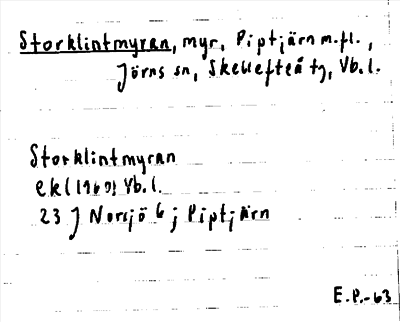 Storklintmyran, myr, Piptjärn m.fl.,
Jörns sn, Skellefteå tg, Vb.l.
Storklintmyran
ek (1960) Vb.l.
23 J Norsjö 6 j Piptjärn
E.P.-63